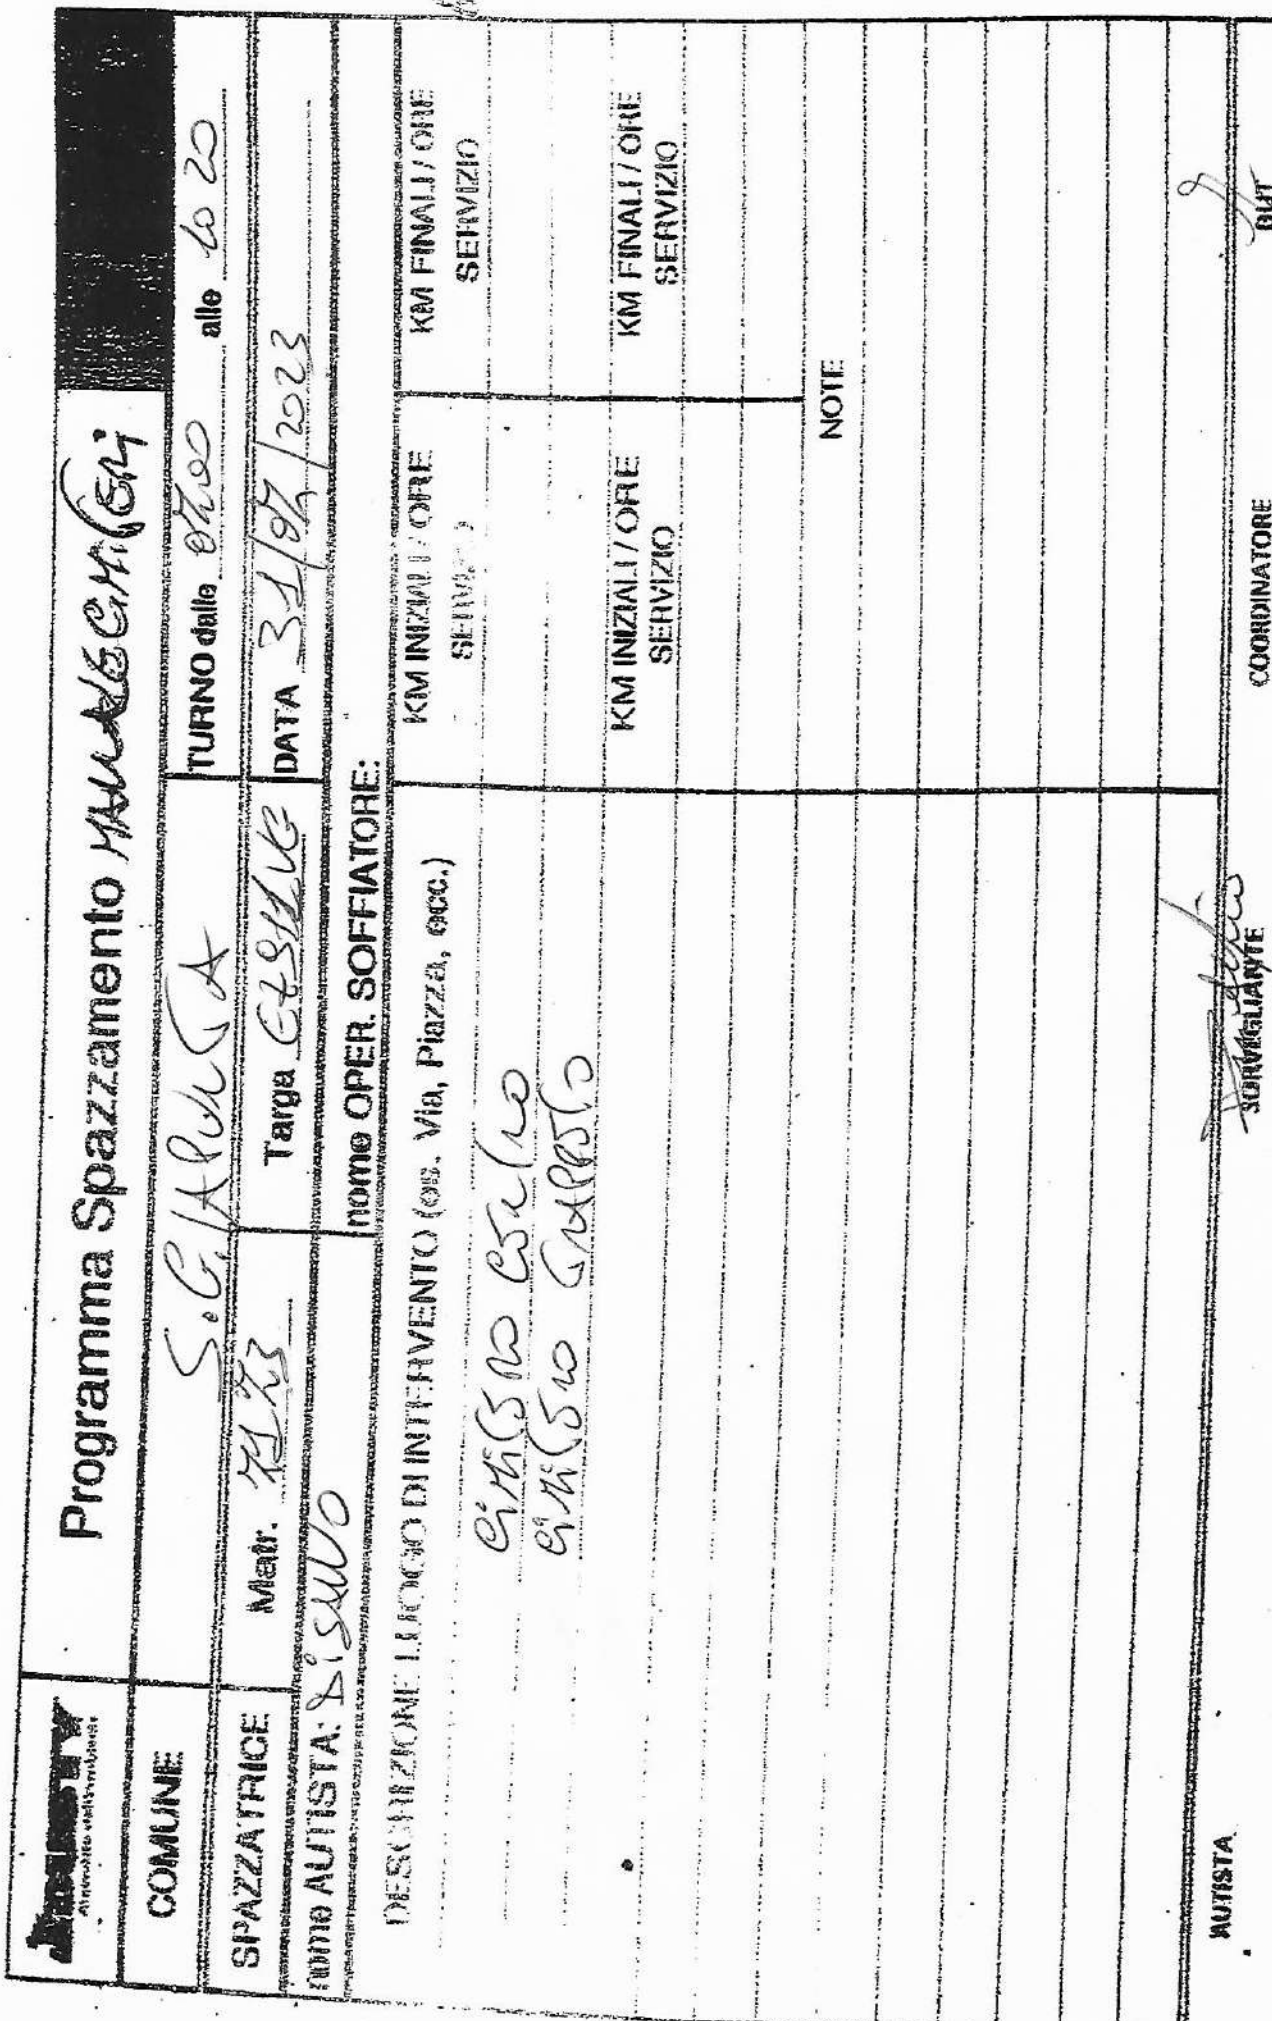 Programma Spazzamento
COMUNE S.G. LA PUNTA TURNO dalle 07.00 alle 10 20
SPAZZATRICE Matr. 7173 Targa DATA 31/07/2023
nome AUTISTA: nome OPER. SOFFIATORE:
DESCRIZIONE LUOGO DI INTERVENTO (es. Via, Piazza, ecc.) KM INIZIALI / ORE SERVIZIO KM FINALI / ORE SERVIZIO
Cimitero Centro
Cimitero Trappeto
KM INIZIALI / ORE SERVIZIO KM FINALI / ORE SERVIZIO
NOTE
AUTISTA SORVEGLIANTE COORDINATORE